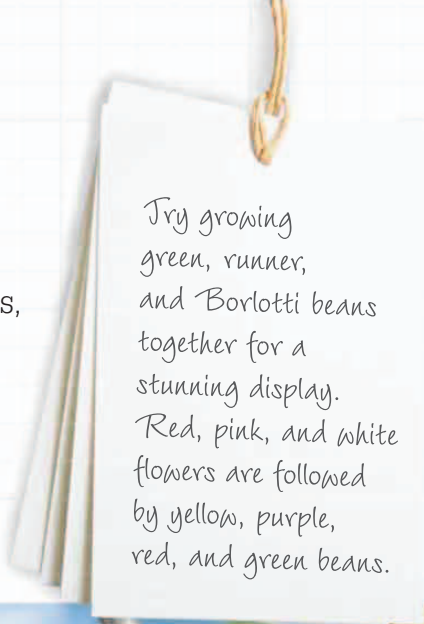 s,
Try growing
green, runner,
and Borlotti beans
together for a
stunning display.
Red, pink, and white
flowers are followed
by yellow, purple,
red, and green beans.